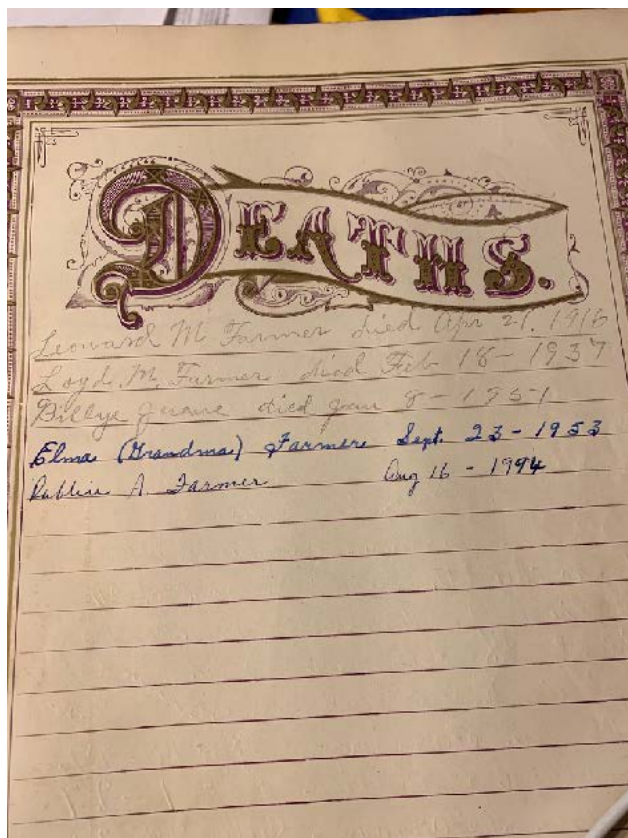 DEATHS.
Leonard M Farmer died Apr 21, 1916
Loyd M. Farmer died Feb 18 - 1937
Billye died Jan 8 - 1951
Elma (Grandma) Farmer Sept. 23 - 1953
A. Farmer Aug 16 - 1994